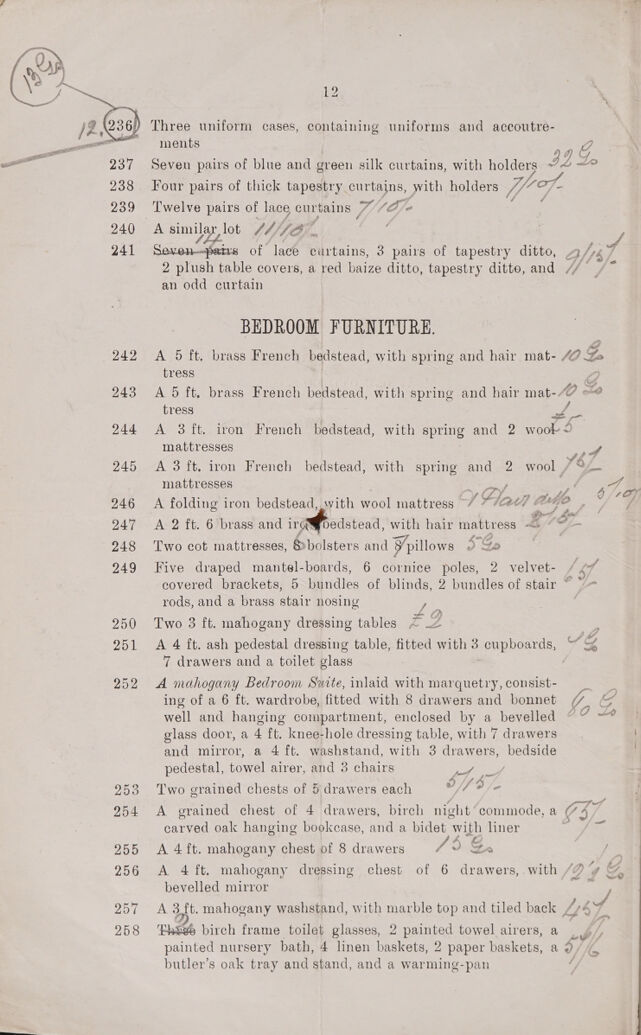 13 Gs
12
12, 236 Three uniform cases, containing uniforms and accoutre-
ments
237 Seven pairs of blue and green silk curtains, with holders 32 Gs
238 Four pairs of thick tapestry curtains, with holders 7/10/-
239 Twelve pairs of lace curtains 7/10/-
240 A similar lot 11/10/-
241 Seven pairs of lace curtains, 3 pairs of tapestry ditto, 9/15/-
2 plush table covers, a red baize ditto, tapestry ditto, and
an odd curtain
BEDROOM FURNITURE.
242 A 5 ft. brass French bedstead, with spring and hair mat- 10 Gs
tress
243 A 5 ft. brass French bedstead, with spring and hair mat- 10 Gs
tress
244 A 3 ft. iron French bedstead, with spring and 2 wool £5
mattresses
245 A 3 ft. iron French bedstead, with spring and 2 wool
mattresses
246 A folding iron bedstead, with wool mattress 1 Hair ditto
247 A 2 ft. 6 brass and iron bedstead, with hair mattress
248 Two cot mattresses, 8 bolsters and pillows 5 Gs
249 Five draped mantel-boards, 6 cornice poles, 2 velvet-
covered brackets, 5 bundles of blinds, 2 bundles of stair
rods, and a brass stair nosing
250 Two 3 ft. mahogany dressing tables £2
251 A 4 ft. ash pedestal dressing table, fitted with 3 cupboards,
7 drawers and a toilet glass
252 A mahogany Bedroom Suite, inlaid with marquetry, consist-
ing of a 6 ft. wardrobe, fitted with 8 drawers and bonnet
well and hanging compartment, enclosed by a bevelled 60 Gs
glass door, a 4 ft. knee-hole dressing table, with 7 drawers
and mirror, a 4 ft. washstand, with 3 drawers, bedside
pedestal, towel airer, and 3 chairs
253 Two grained chests of 5 drawers each 5/15/-
254 A grained chest of 4 drawers, birch night commode, a
carved oak hanging bookcase, and a bidet with liner
255 A 4 ft. mahogany chest of 8 drawers 15 Gs
256 A 4 ft. mahogany dressing chest of 6 drawers, with
bevelled mirror
257 A 3 ft. mahogany washstand, with marble top and tiled back
258 Three birch frame toilet glasses, 2 painted towel airers, a
painted nursery bath, 4 linen baskets, 2 paper baskets, a
butler's oak tray and stand, and a warming-pan